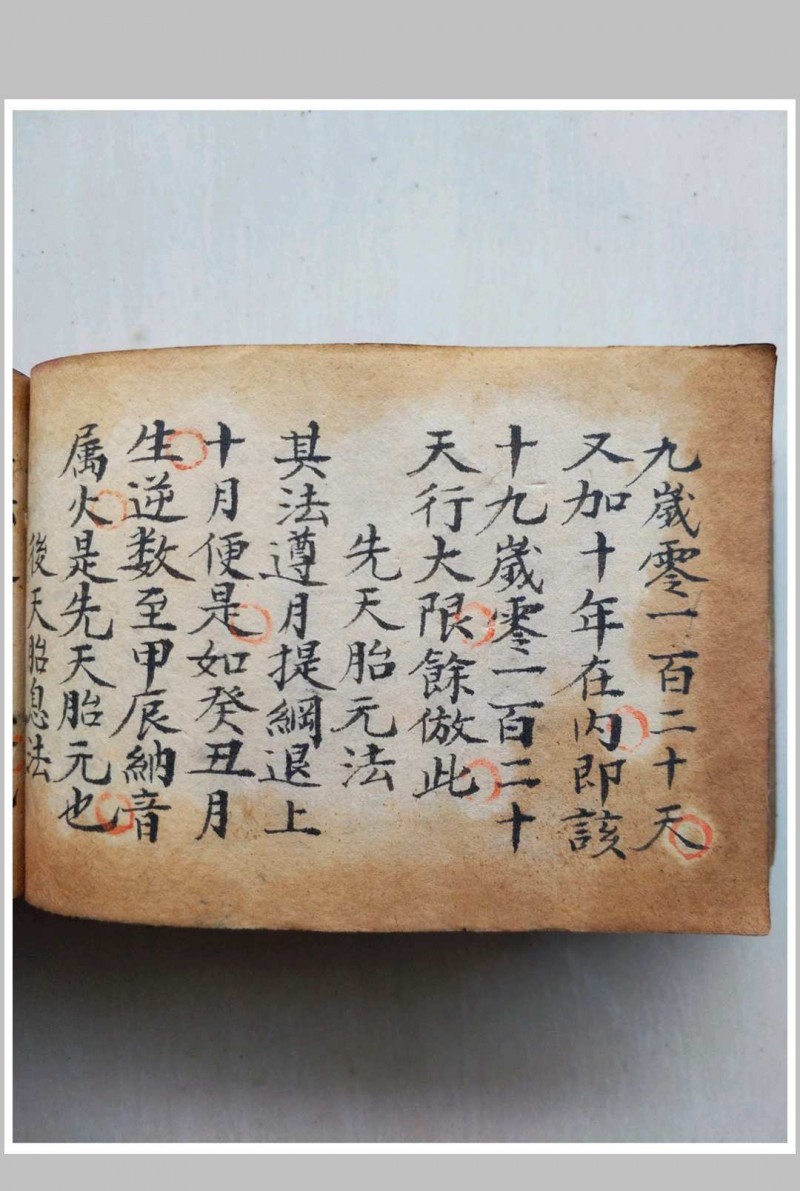 九歲零一百二十天
又加十年在內即該
十九歲零一百二十
天行大限餘倣此
先天胎元法
其法遵月提綱退上
十月便是如癸丑月
生逆数至甲辰納音
属火是先天胎元也
後天胎息法